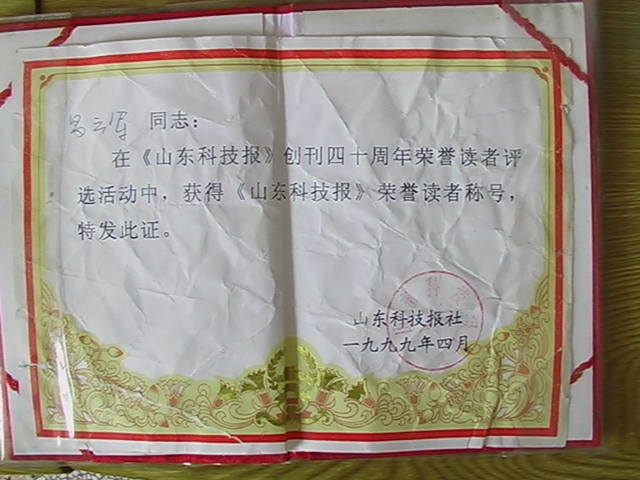 同志：
在《山东科技报》创刊四十周年荣誉读者评
选活动中，获得《山东科技报》荣誉读者称号，
特发此证。
山东科技报社
一九九九年四月